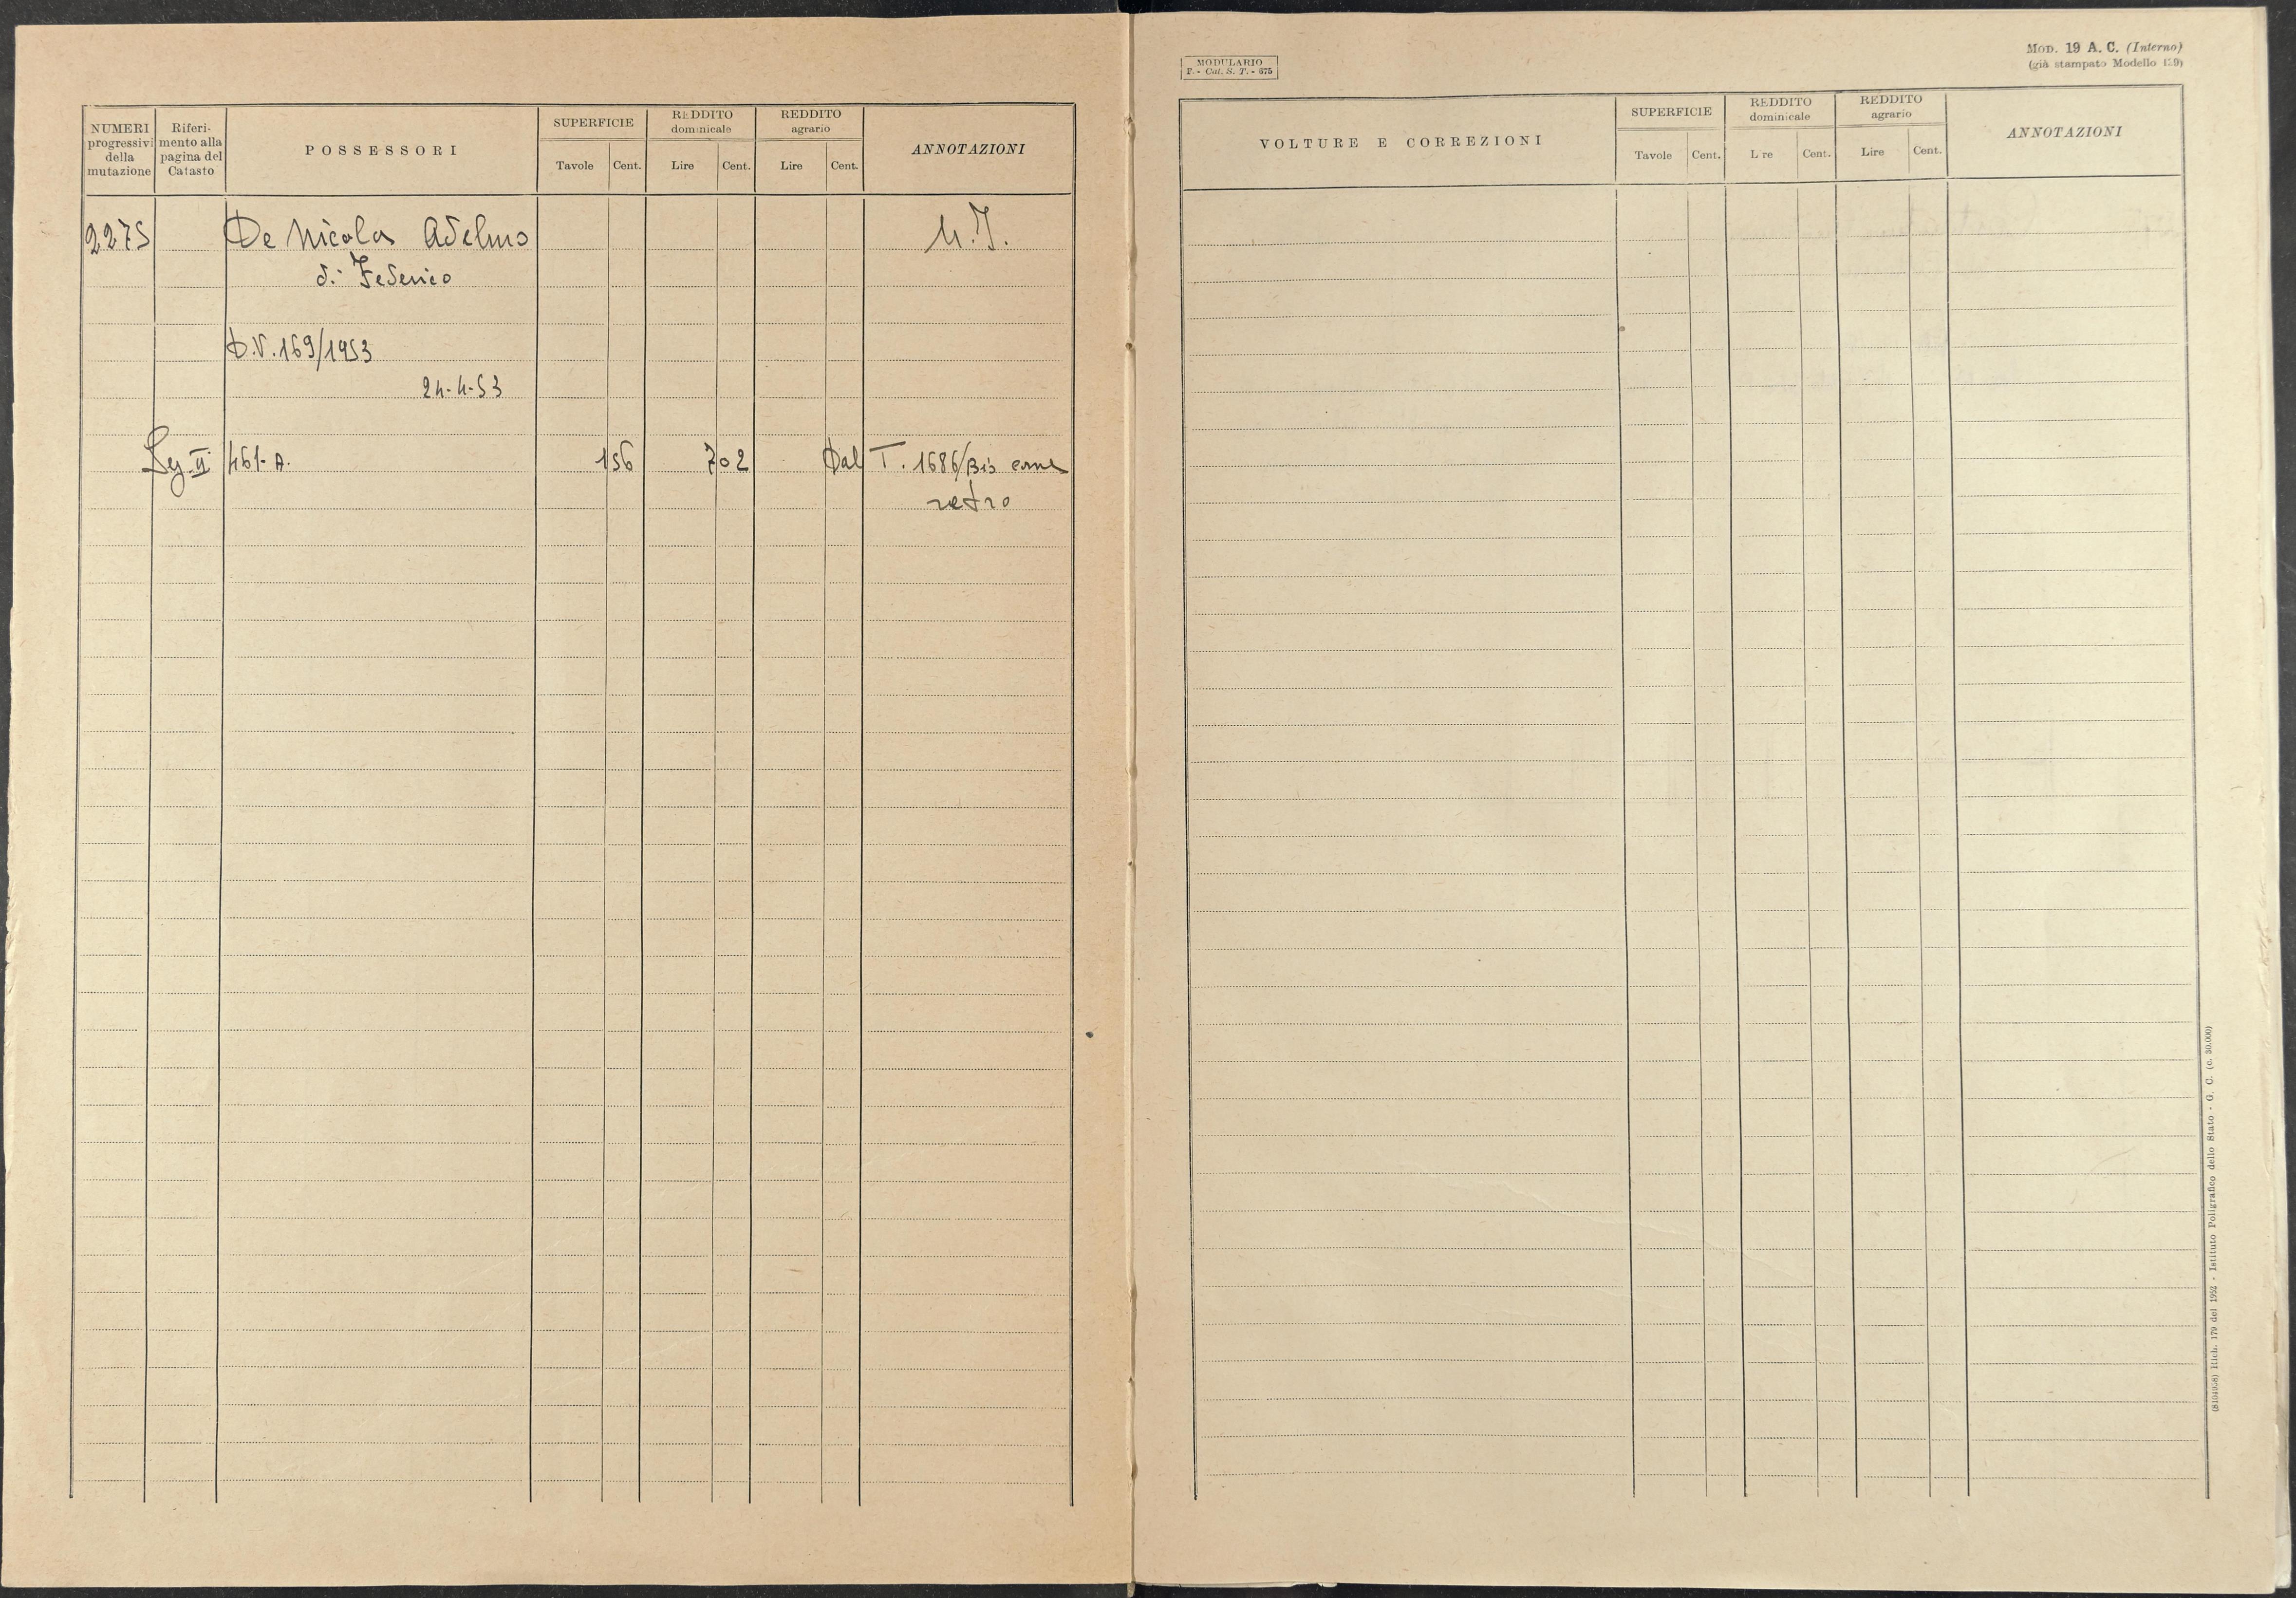 NUMERI progressivi della mutazione
Riferimento alla pagina del Catasto
POSSESSORI
SUPERFICIE
Tavole Cent.
REDDITO dominicale
Lire Cent.
REDDITO agrario
Lire Cent.
ANNOTAZIONI
2275 De Nicola Adelmo
di Federico
D.V. 169/1953
24-4-53
II 461-A. 1 56 7 02 Dal T. 1686/Bis come
retro
MODULARIO
F. - Cat. S. T. - 675
MOD. 19 A. C. (Interno)
(già stampato Modello 129)
VOLTURE E CORREZIONI
SUPERFICIE
Tavole Cent.
REDDITO dominicale
L re Cent.
REDDITO agrario
Lire Cent.
ANNOTAZIONI
Rich. 179 del 1952 - Istituto Poligrafico dello Stato - G. C. (c. 30.000)